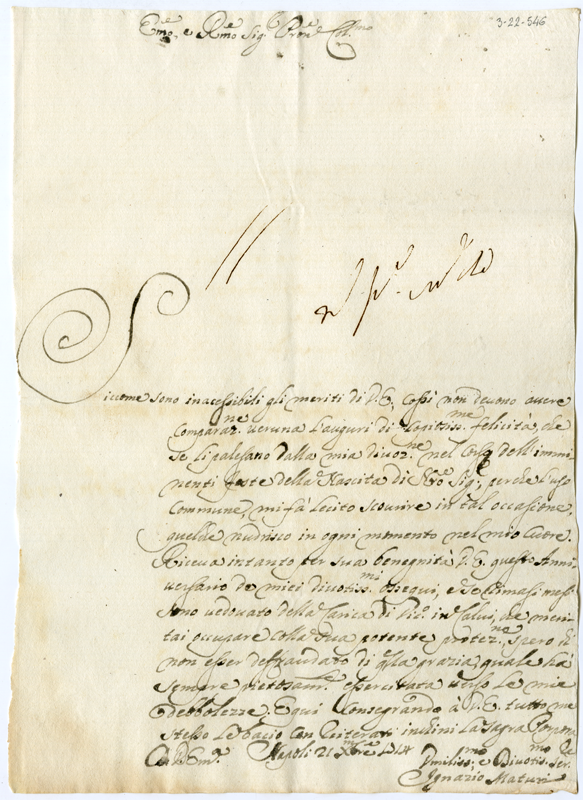 3-22-546
Em.o e R.mo Sig.r Pron.e Col.mo
Siccome sono inacessibili gli meriti di V.E., cossì non devono avere
comparaz.ne veruna l'auguri di felicità, che
se li palesano dalla mia divoz.ne nel corso dell'immi
nenti feste della Nascita di Sig.re, perche l'uso
commune, mi fà lecito scourire in tal occasione,
quelche nudrisco in ogni momento nel mio cuore.
Riceva intanto per sua benegnità V.E. questo Anni
versario de miei divotiss.mi ossequi, e se
sono vedovato della Carica di Vic.o in Calvi, che meri
tai occupare colla sua potente protez.ne, spero
non esser defraudato di q.lla grazia, quale hà
sempre pietosam.te essercitata verso le mie
debbolezze. E qui consegrando à V.E. tutto me
stesso Le bacio con reiterati inchini la sagra Porpora
Di V.Em.a Napoli 21 Xbre
Umiliss.mo e Divotis.mo Ser.
Ignazio Maturi